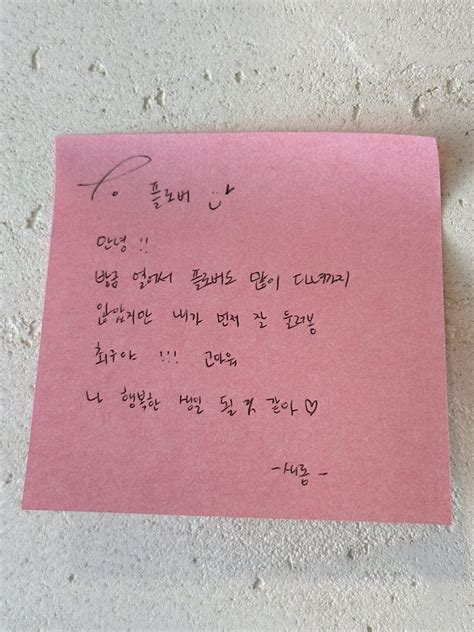 To. 플로버
안녕 !!
방금 열어서 플로버도 많이 다녀가지
않았지만 내가 먼저 잘 둘러봄
최구야 !!! 고마워
나 행복한 생일 될 것 같아 ♡
- 새롬 -